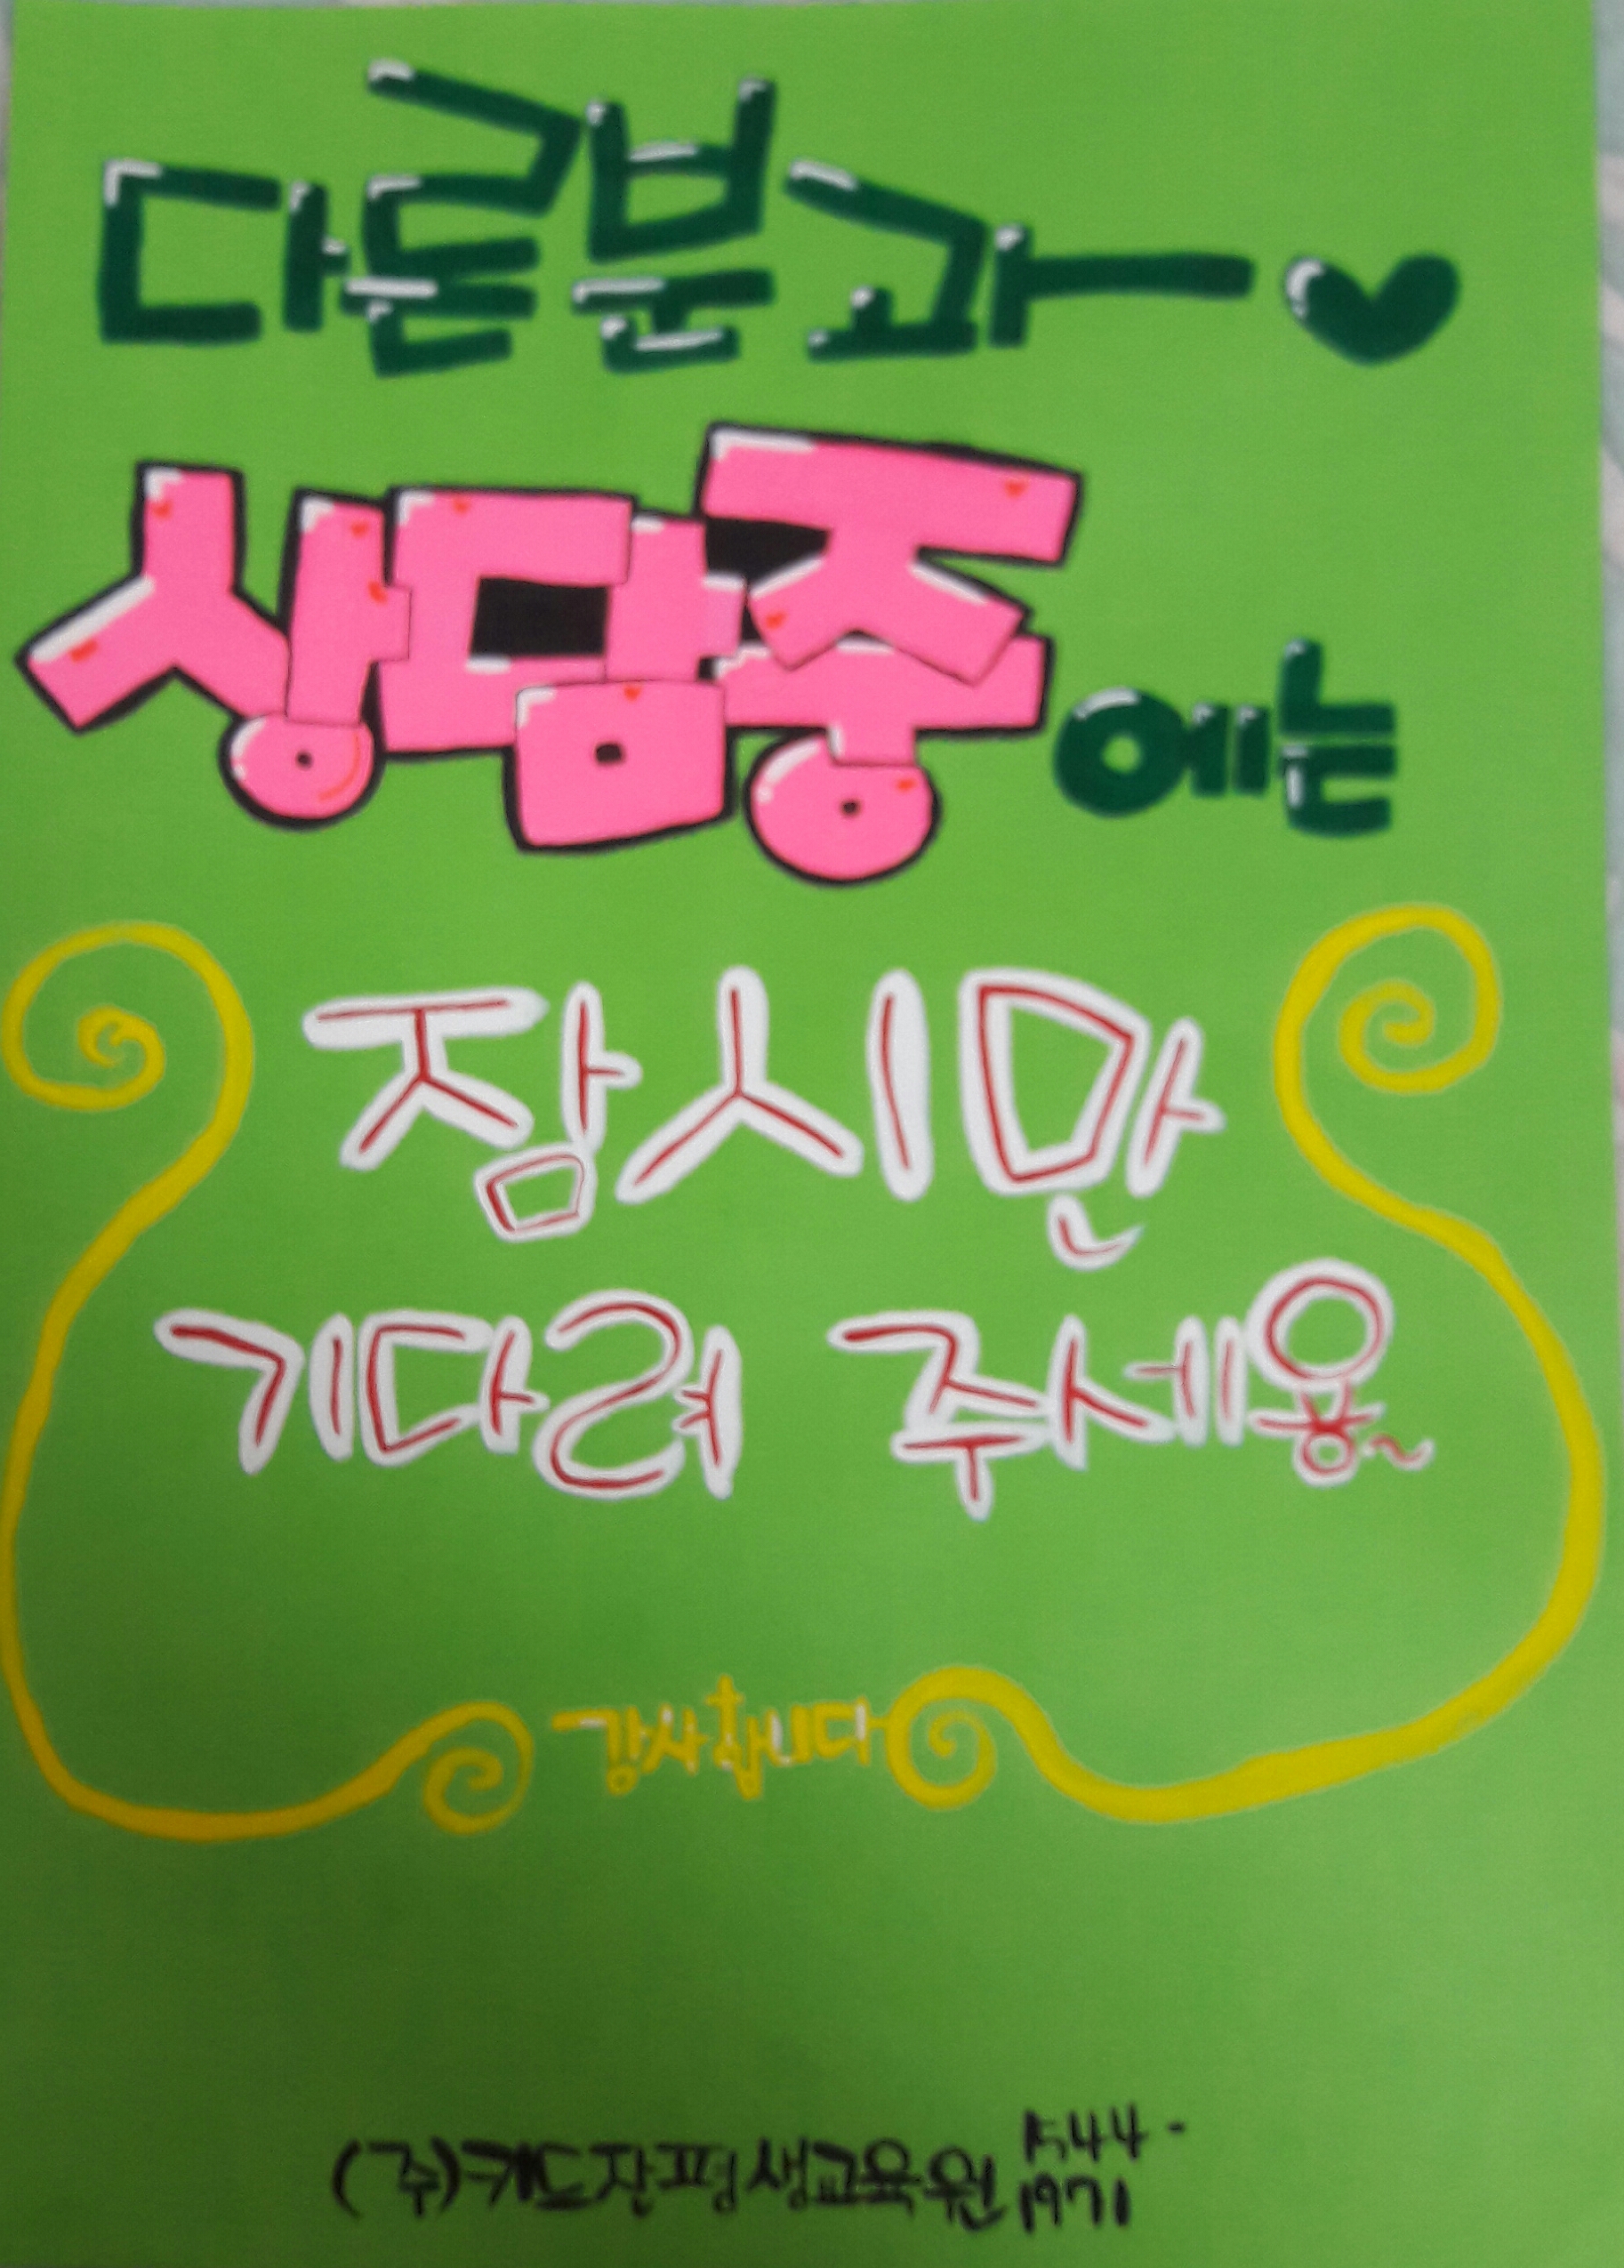 다른분과
상담중에는
잠시만
기다려 주세용~
감사합니다
(주)키드잔평생교육원 1544-
1971